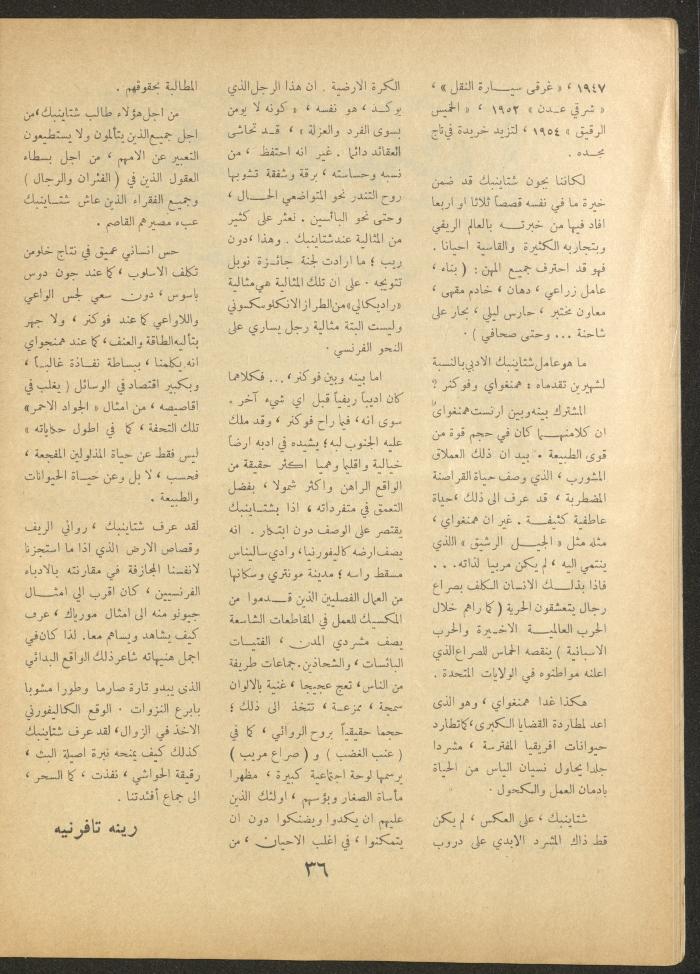 ١٩٤٧ ، « غرقى سيارة النقل » ،
« شرقي عدن » ١٩٥٢ ، « الخميس
الرقيق » ١٩٥٤ ، لتزيد خريدة في تاج
مجده .
لكاننا بجون شتاينبك قد ضمن
خيرة ما في نفسه قصصاً ثلاثا او اربعا
افاد فيها من خبرته بالعالم الريفي
وبتجاربه الكثيرة والقاسية احيانا .
فهو قد احترف جميع المهن : ( بناء ،
عامل زراعي ، دهان ، خادم مقهى ،
معاون مختبر ، حارس ليلي ، بحار على
شاحنة ... وحتى صحافي ) .
ما هو عامل شتاينبك الادبي بالنسبة
لشهيرين تقدماه : همنغواي وفوكنر ؟
المشترك بينه وبين ارنست همنغواي
ان كلامنهما كان في حجم قوة من
قوى الطبيعة . بيد ان ذلك العملاق
المشورب ، الذي وصف حياة القراصنة
المضطربة ، قد عرف الى ذلك ، حياة
عاطفية كثيفة . غير ان همنغواي ،
مثله مثل « الجيل الرشيق » اللذي
ينتمي اليه ، لم يكن مربيا لذاته . . .
فاذا بذلك الانسان الكلف بصراع
رجال يتعشقون الحرية ( كما راهم خلال
الحرب العالمية الاخيرة والحرب
الاسبانية ) ينقصه الحماس للصراع الذي
اعلنه مواطنوه في الولايات المتحدة .
هكذا غدا همنغواي ، وهو الذي
اعد لمطاردة القضايا الكبرى ، كما تطارد
حيوانات افريقيا المفترسة ، مشردا
جلدا يحاول نسيان الياس من الحياة
بادمان العمل والكحول .
شتاينبك ، على العكس ، لم يكن
قط ذاك المشرد الابدي على دروب
الكرة الارضية . ان هذا الرجل الذي
يوكد ، هو نفسه ، « كونه لا يومن
بسوى الفرد والعزلة » ، قد تحاشى
العقائد دائما . غير انه احتفظ ، من
نسبه وحساسته ، برقة وشفقة تشوبها
روح التندر نحو المتواضعي الحال ،
وحتى نحو البائسين . نعثر على كثير
من المثالية عند شتاينبك . وهذا ، دون
ريب ؛ ما ارادت لجنة جائزة نوبل
تتويجه . على ان تلك المثالية هي مثالية
«راديكالي» من الطراز الانكلوسكسوني
وليست البتة مثالية رجل يساري على
النحو الفرنسي .
اما بينه وبين فوكنر ، ... فكلاهما
كان اديباً ريفياً قبل اي شيء آخر .
سوى انه ، فيما راح فوكنر ، وقد ملك
عليه الجنوب لبه ؛ يشيده في ادبه ارضاً
خيالية واقليما وهميا اكثر حقيقة من
الواقع الراهن واكثر شمولا ، بفضل
التعمق في متفرداته ، اذا بشتاينبك
يقتصر على الوصف دون ابتكار . انه
يصف ارضه كاليفورنيا ، وادي ساليناس
مسقط راسه ؛ مدينة مونتري وسكانها
من العمال الفصليين الذين قدموا من
المكسيك للعمل في المقاطعات الشاسعة
يصف مشردي المدن ، الفتيات
البائسات ، والشحاذين . جماعات طريفة
من الناس ، تعج عجيجا ، غنية بالالوان
سمجة ، ممزعة ، تتخذ الى ذلك ؛
حجما حقيقياً بروح الروائي ، كما في
( عنب الغضب ) و ( صراع مريب )
يرسمها لوحة اجتماعية كبيرة ، مظهرا
مأساة الصغار وبؤسهم ، اولئك الذين
عليهم ان يكدوا ويضنكوا دون ان
يتمكنوا ، في اغلب الاحيان ، من
المطالبة بحقوقهم .
من اجل هؤلاء طالب شتاينبك ، من
اجل جميع الذين يتألمون ولا يستطيعون
التعبير عن الامهم ، من اجل بسطاء
العقول الذين في ( الفئران والرجال )
وجميع الفقراء الذين عاش شتاينبك
عبء مصيرهم القاصم .
حس انساني عميق في نتاج خلو من
تكلف الاسلوب ، كما عند جون دوس
باسوس ، دون سعي لجس الواعي
واللاواعي كما عند فوكنر ، ولا جهر
بتأليه الطاقة والعنف ، كما عند همنجواي
انه يكلمنا ، ببساطة نفاذة غالباً ،
وبكبير اقتصاد في الوسائل ( يغلب في
اقاصيصه ، من امثال « الجواد الاحمر»
تلك التحفة ، كما في اطول حكاياته »
ليس فقط عن حياة المذلولين المفجعة ،
فحسب ، لا بل وعن حياة الحيوانات
والطبيعة .
لقد عرف شتاينبك ، روائي الريف
وقصاص الارض الذي اذا ما استجزنا
لانفسنا المجازفة في مقارنته بالادباء
الفرنسيين ، كان اقرب الى امثال
جيونو منه الى امثال مورياك ، عرف
كيف يشاهد ويساهم معا . لذا كان في
اجمل هنيهاته شاعر ذلك الواقع البدائي
الذي يبدو تارة صارما وطورا مشوبا
بابرع النزوات . الوقع الكاليفورني
الاخذ في الزوال ، لقد عرف شتاينبك
كذلك كيف يمنحه نبرة اصيلة البث ،
رقيقة الحواشي ، نفذت ، كما السحر ،
الى جماع أفئدتنا .
رينه تافرنيه
٣٦